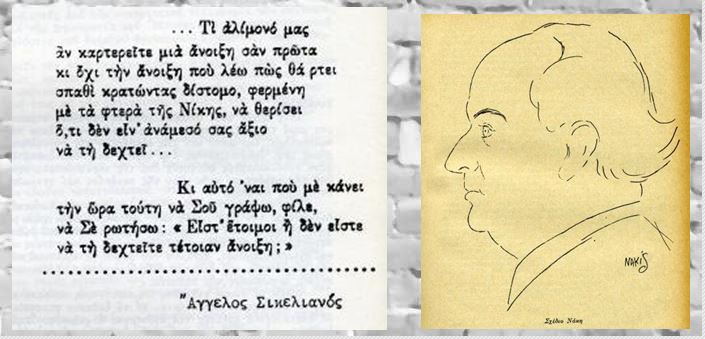 ... Τί ἀλίμονό μας
ἂν καρτερεῖτε μιὰ ἄνοιξη σὰν πρῶτα
κι ὄχι τὴν ἄνοιξη ποὺ λέω πὼς θά ρτει
σπαθὶ κρατώντας δίστομο, φερμένη
μὲ τὰ φτερὰ τῆς Νίκης, νὰ θερίσει
ὅ,τι δὲν εἶν' ἀνάμεσό σας ἄξιο
νὰ τὴ δεχτεῖ...
Κι αὐτό 'ναι ποὺ μὲ κάνει
τὴν ὥρα τούτη νὰ Σοῦ γράψω, φίλε,
νὰ Σὲ ρωτήσω: « Εἶστ' ἕτοιμοι ἢ δὲν εἶστε
νὰ τὴ δεχτεῖτε τέτοιαν ἄνοιξη; »
Ἄγγελος Σικελιανός
ΝΑΚΙΣ
Σχέδιο Νάκη